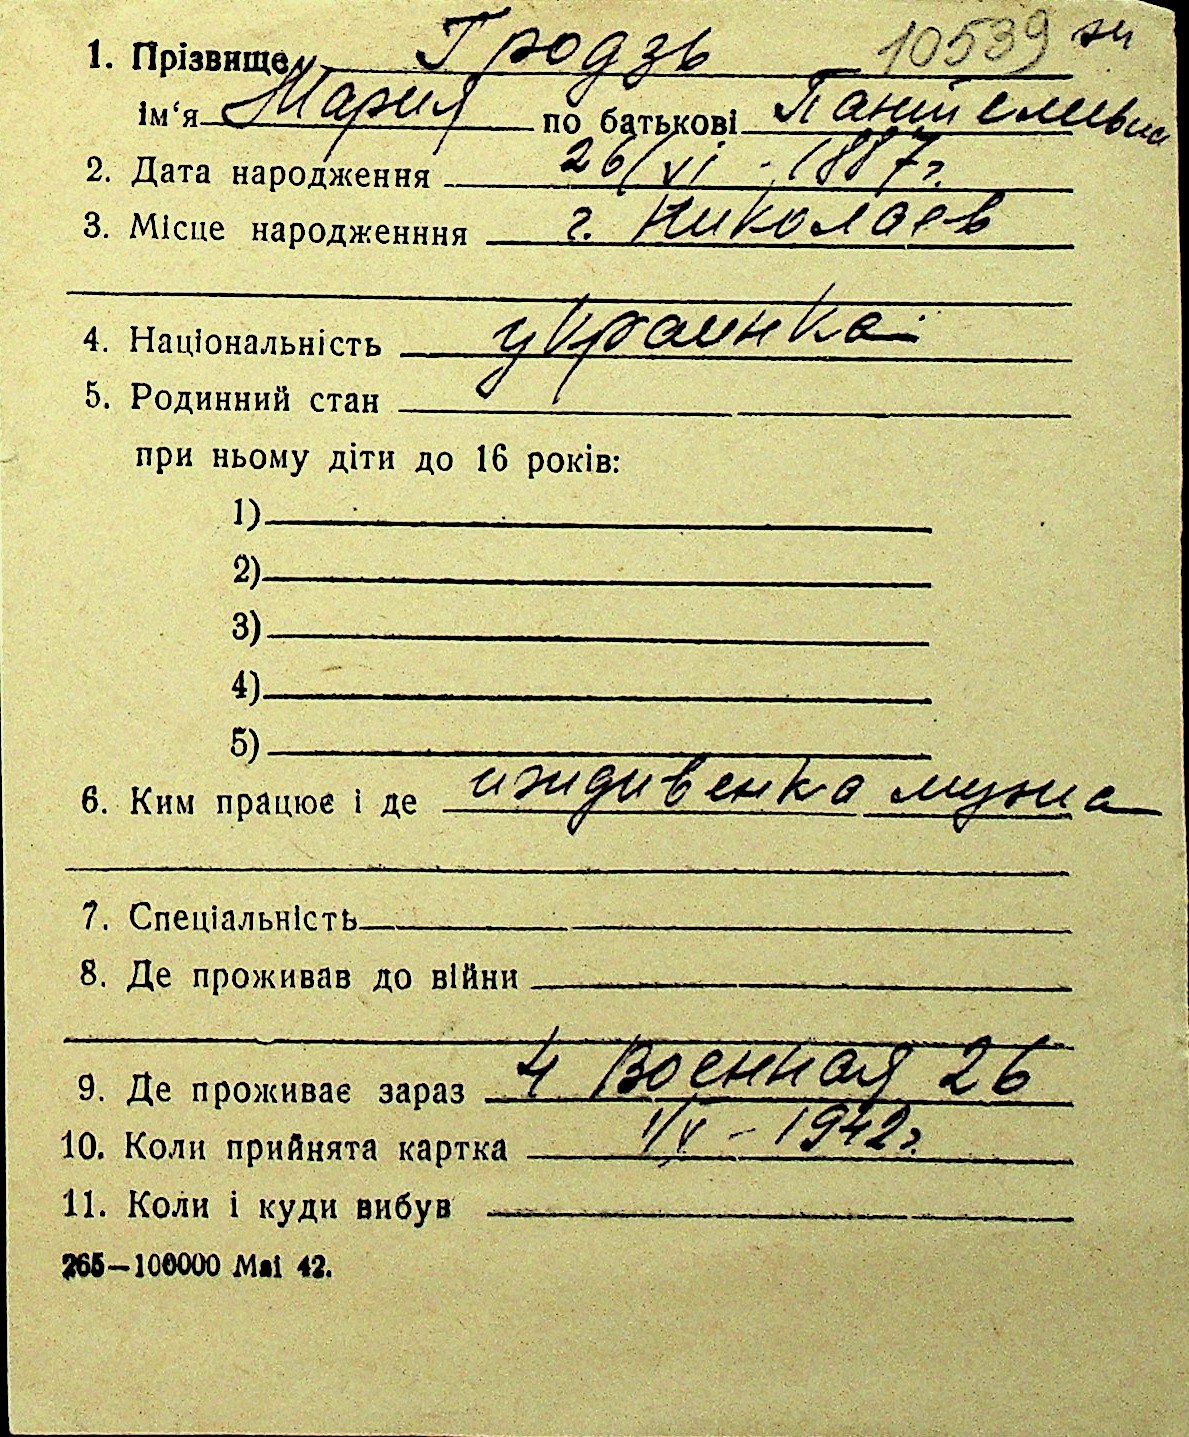 1. Прізвище Гродзь 10539
ім‘я Мария по батькові Пантелеевна
2. Дата народження 26/VI - 1887г.
3. Місце народженння г. Николаев
4. Національність украинка
5. Родинний стан
при ньому діти до 16 років:
1)
2)
3)
4)
5)
6. Ким працює і де иждивенка мужа
7. Спеціальність
8. Де проживав до війни
9. Де проживає зараз 4 Военная 26
10. Коли прийнята картка 1/V - 1942г.
11. Коли і куди вибув
265—100000 Маі 42.